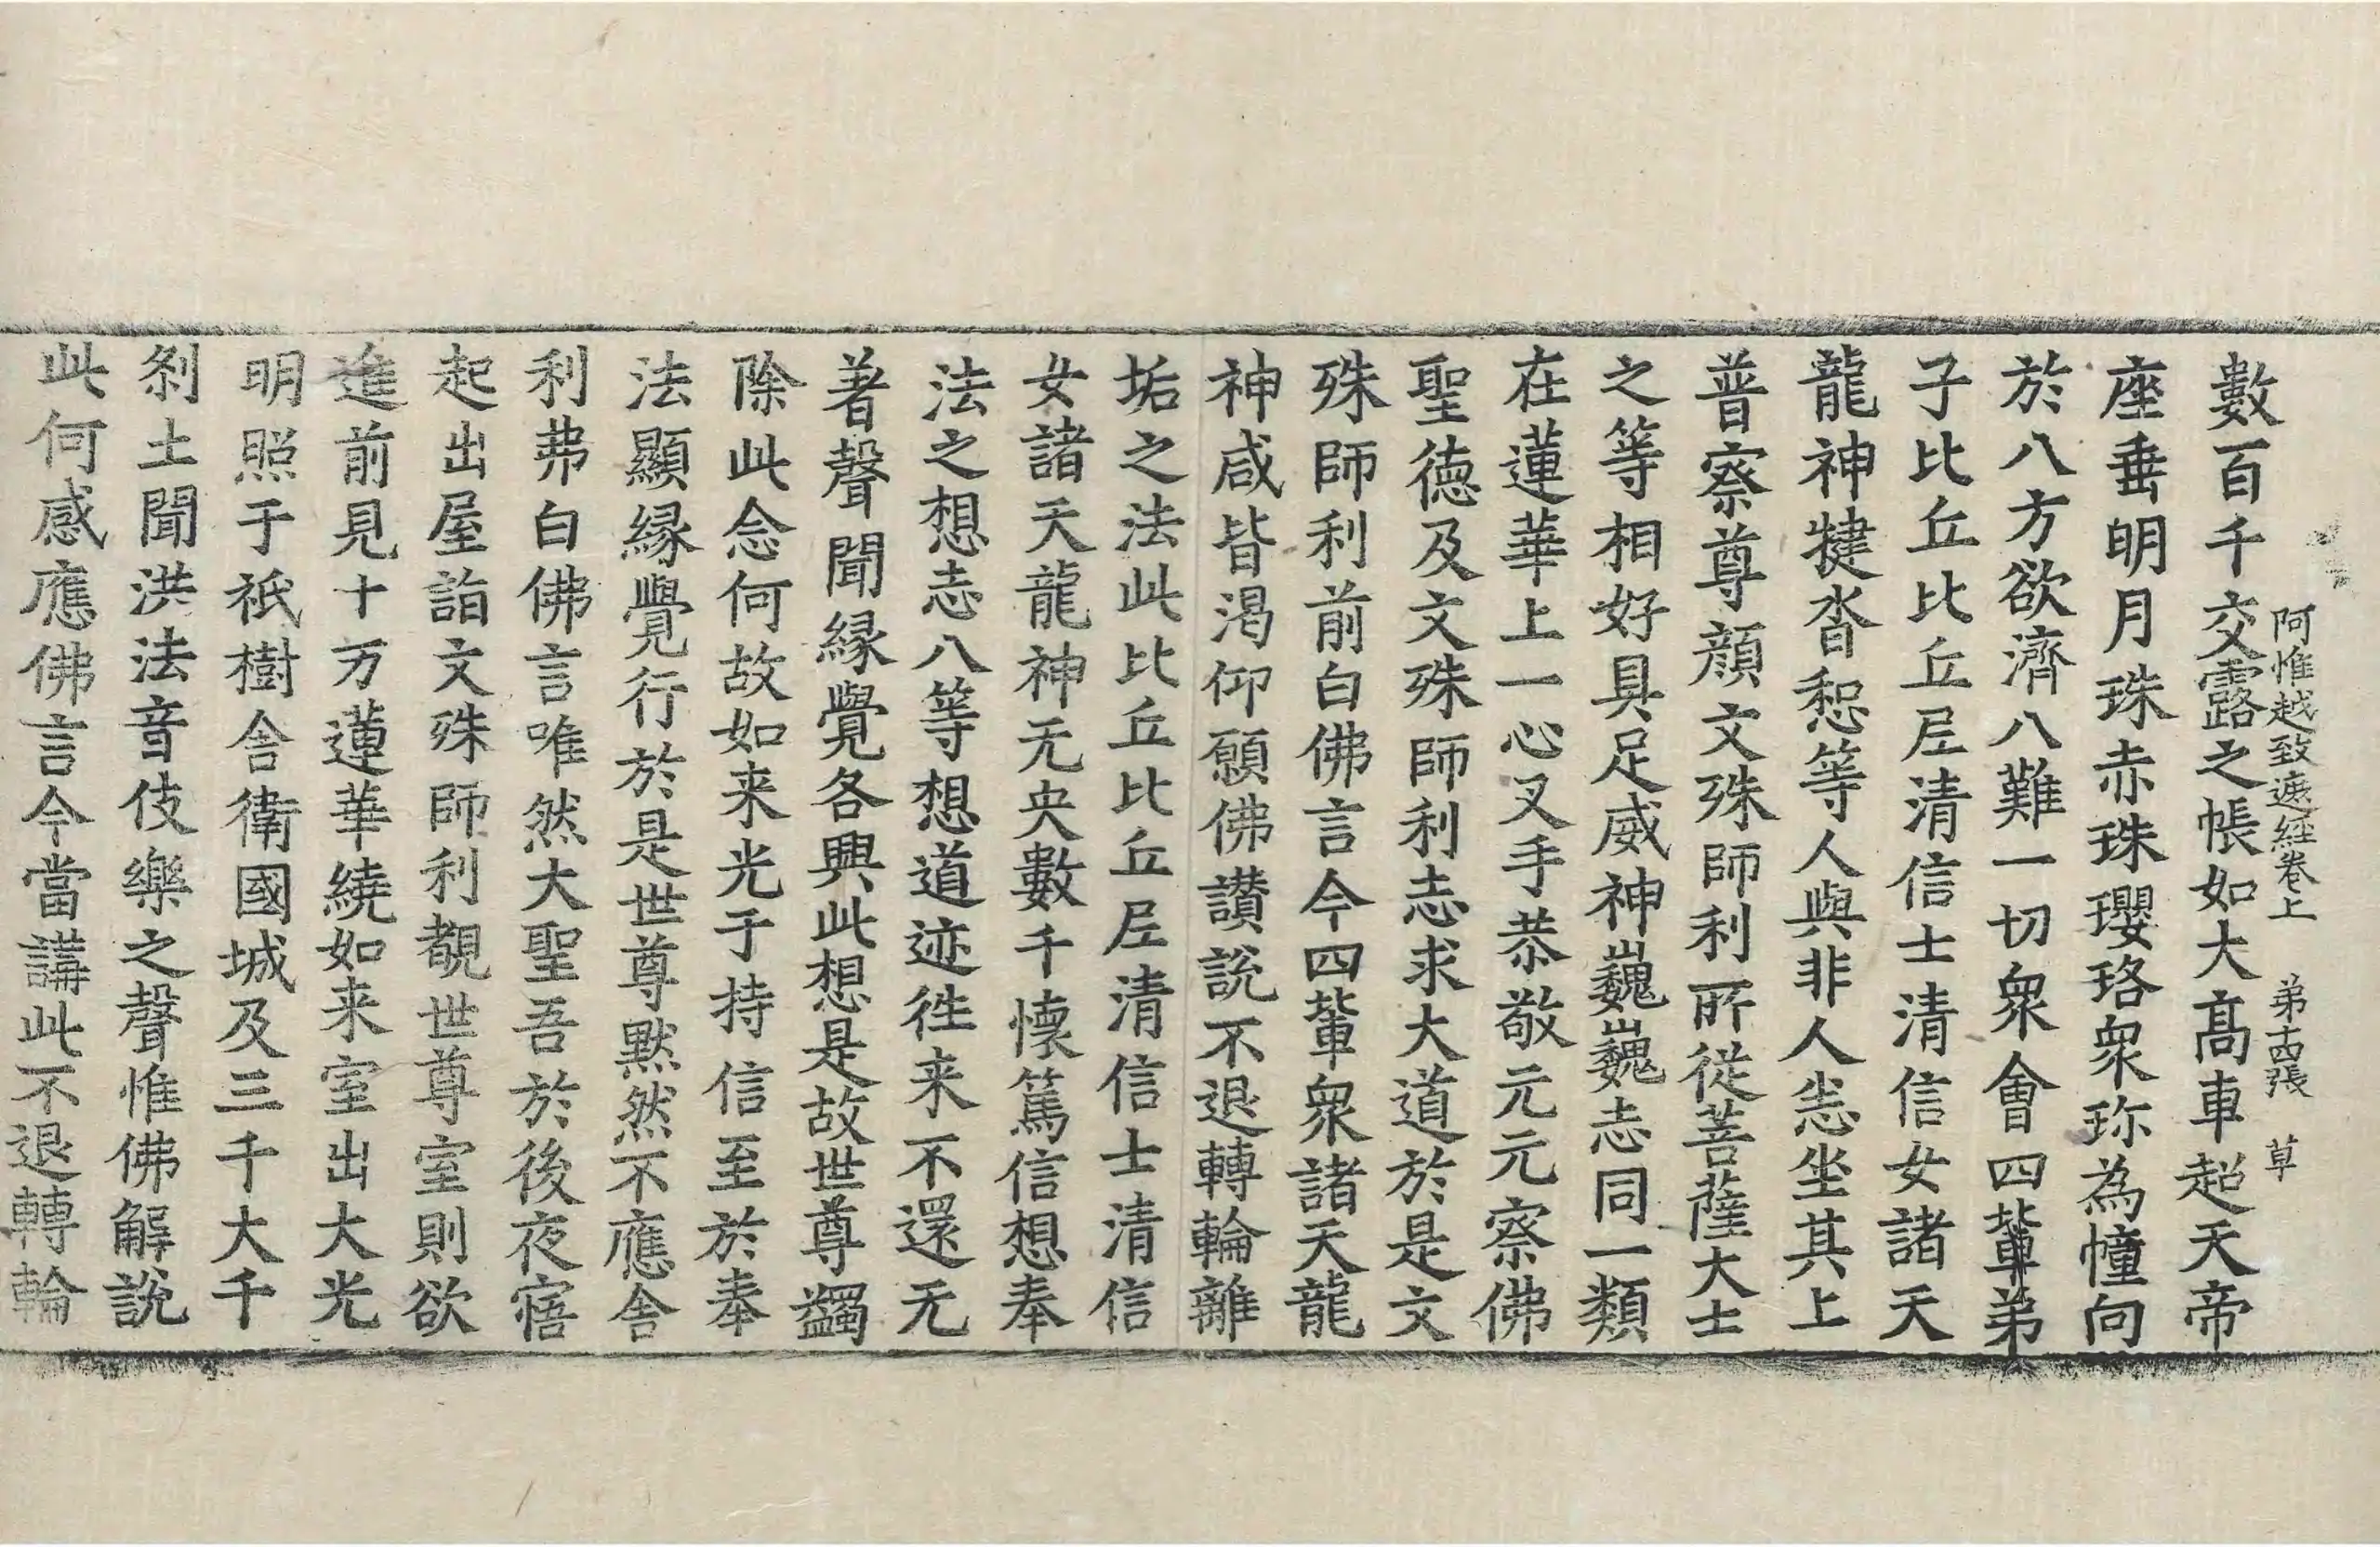 阿惟越致遮經卷上 弟十四張 草
數百千交露之帳如大髙車超天帝
座垂明月珠赤珠瓔珞衆珎為幢向
於八方欲濟八難一切衆會四輩弟
子比丘比丘尼清信士清信女諸天
龍神揵沓惒等人與非人恙坐其上
普察尊顔文殊師利所從菩薩大士
之等相好具足威神巍巍志同一類
在蓮華上一心叉手恭敬元元察佛
聖德及文殊師利志求大道於是文
殊師利前白佛言今四輩衆諸天龍
神咸皆渴仰願佛讃説不退轉輪離
垢之法此比丘比丘尼清信士清信
女諸天龍神无央數千懷篤信想奉
法之想志八等想道迹徃来不還无
著聲聞縁覺各興此想是故世尊蠲
除此念何故如来光于持信至於奉
法顯縁覺行於是世尊黙然不應舎
利弗白佛言唯然大聖吾於後夜寤
起出屋詣文殊師利覩世尊室則欲
進前見十方蓮華繞如来室出大光
明照于祇樹舎衛國城及三千大千
刹土聞洪法音伎樂之聲惟佛解説
此何感應佛言今當講此不退轉輪